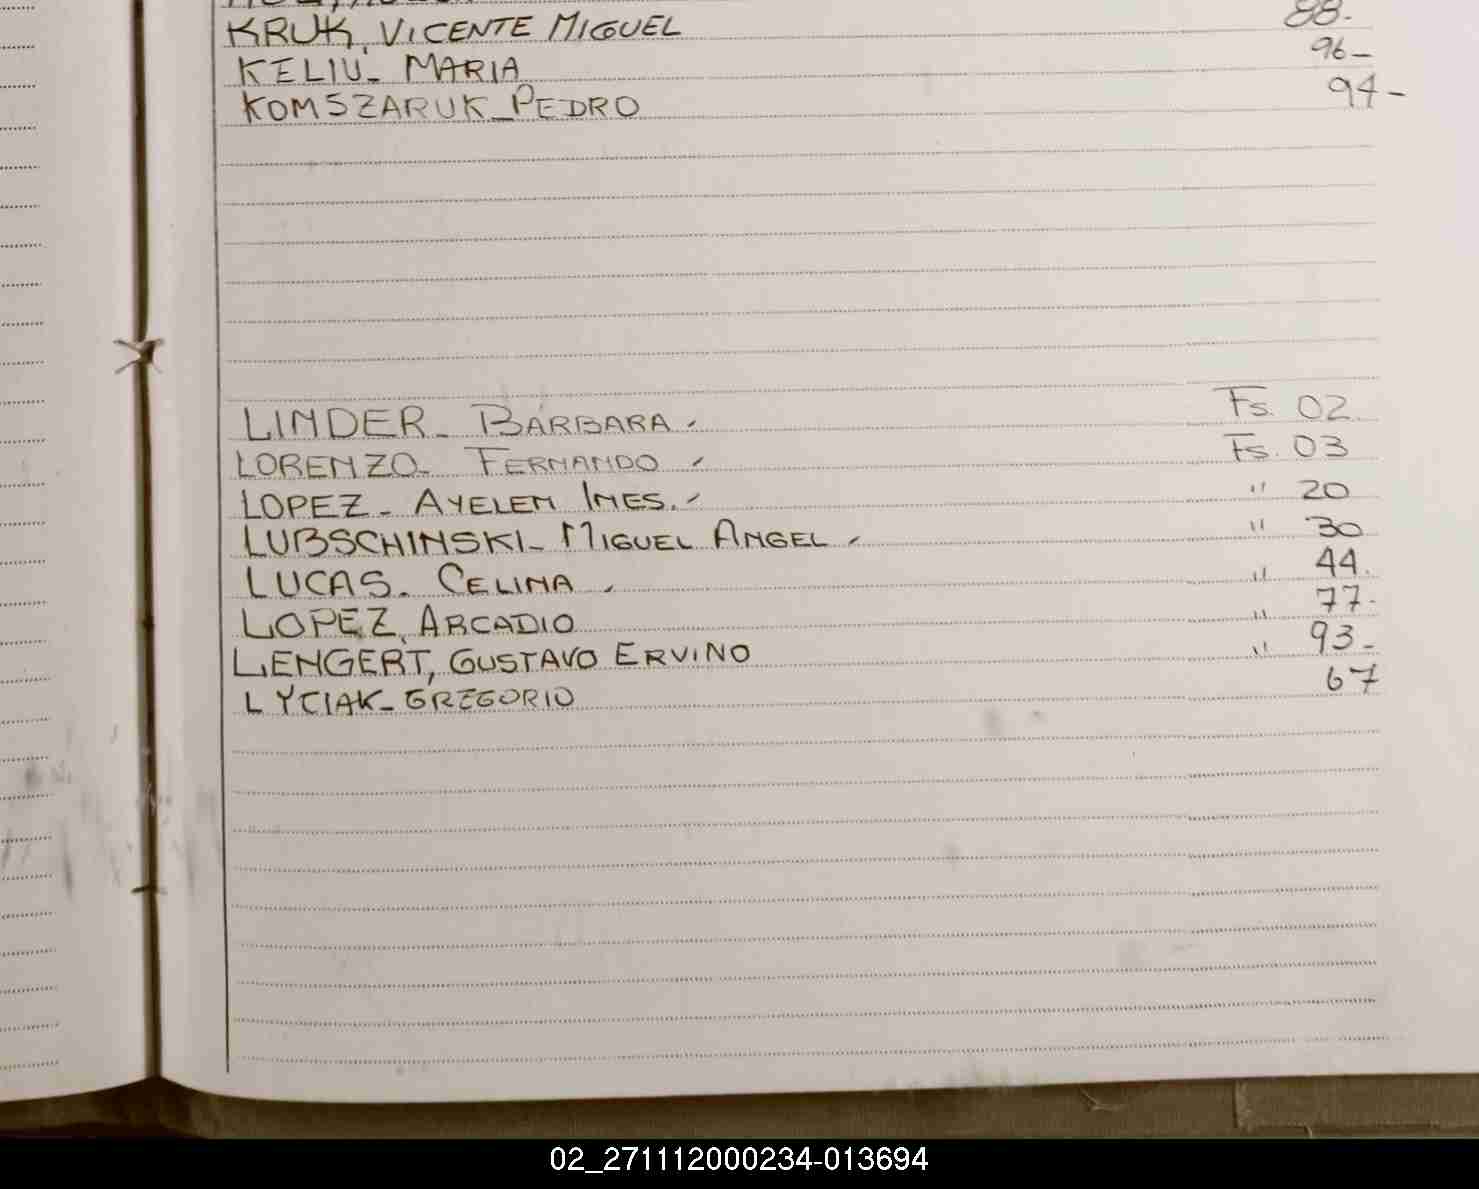 KRUK, VICENTE MIGUEL 88.
KELIU- MARIA 96-
KOMSZARUK-PEDRO 94-
LINDER- BÁRBARA.- Fs. 02.
LORENZO- FERNANDO - Fs. 03
LOPEZ- AYELEN INES.- " 20
LUBSCHINSKI- MIGUEL ANGEL - " 30
LUCAS. CELINA - " 44.
LOPEZ, ARCADIO " 77.
LENGERT, GUSTAVO ERVINO " 93-
LYCIAK- GREGORIO 67
02_271112000234-013694